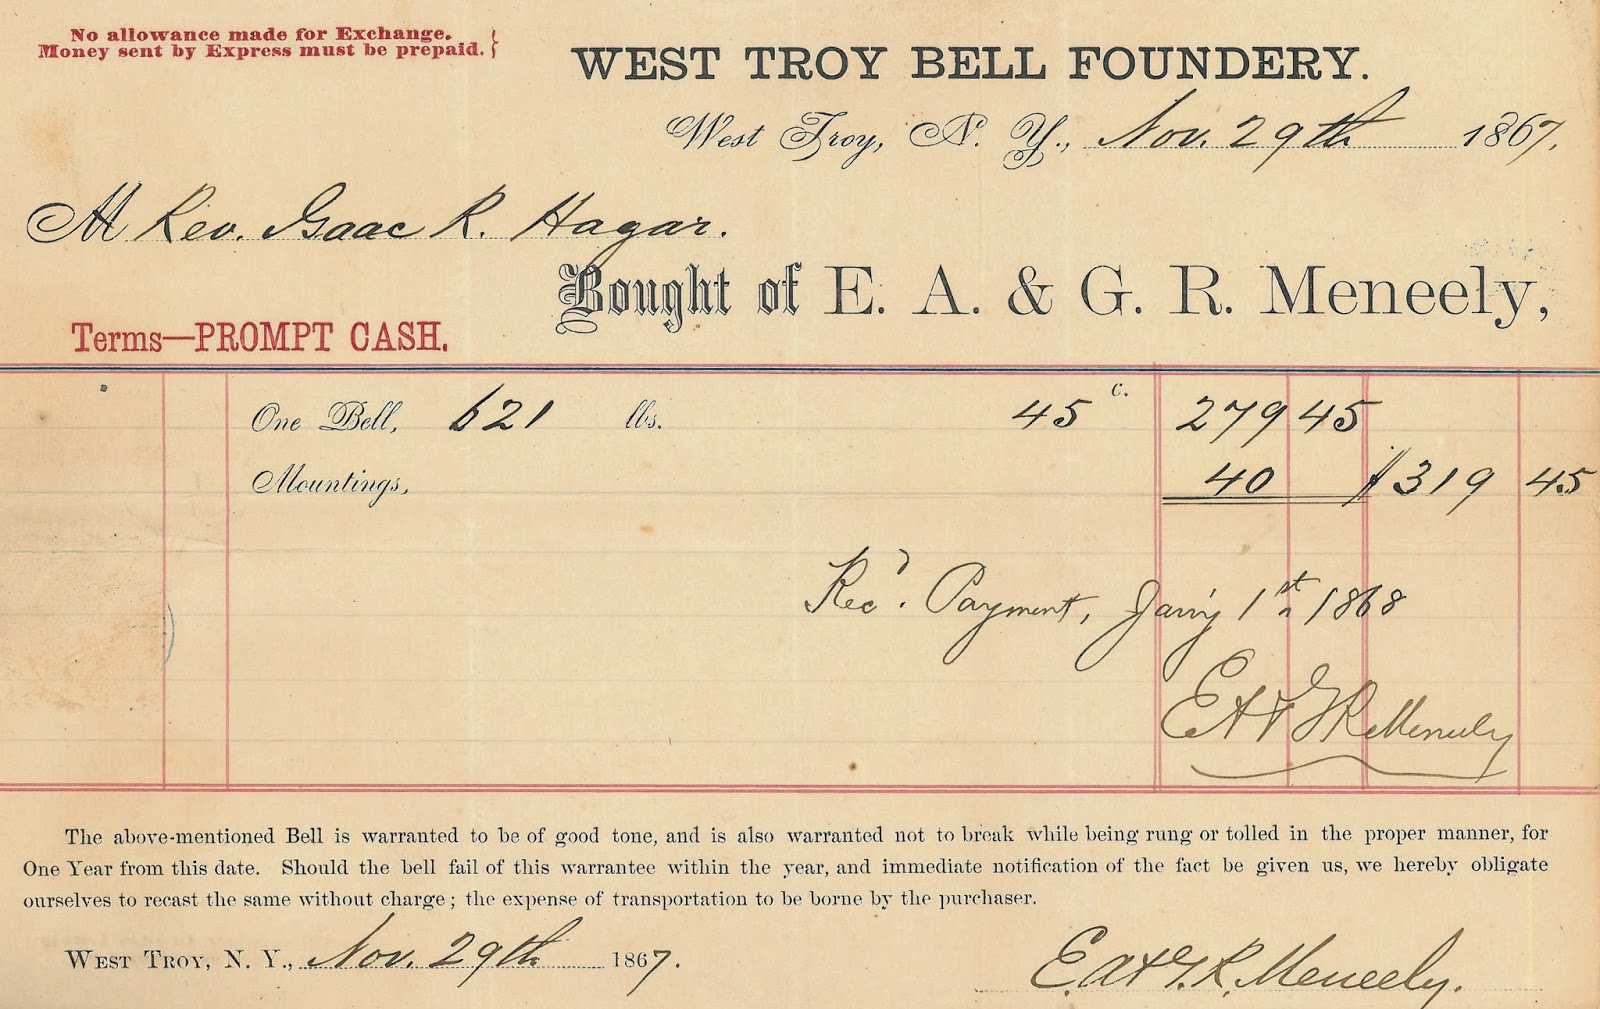 No allowance made for Exchange.
Money sent by Express must be prepaid. }
WEST TROY BELL FOUNDERY.
West Troy, N. Y., Nov. 29th 1867.
M Rev. Isaac R. Hagar.
Bought of E. A. & G. R. Meneely,
Terms—PROMPT CASH.
One Bell, 621 lbs. 45 c. 279 45
Mountings, 40 $319 45
Rec'd. Payment, Jan'y 1st 1868
E A & G R Meneely
The above-mentioned Bell is warranted to be of good tone, and is also warranted not to break while being rung or tolled in the proper manner, for
One Year from this date. Should the bell fail of this warrantee within the year, and immediate notification of the fact be given us, we hereby obligate
ourselves to recast the same without charge; the expense of transportation to be borne by the purchaser.
WEST TROY, N. Y., Nov. 29th 1867.
E. A. & G. R. Meneely.